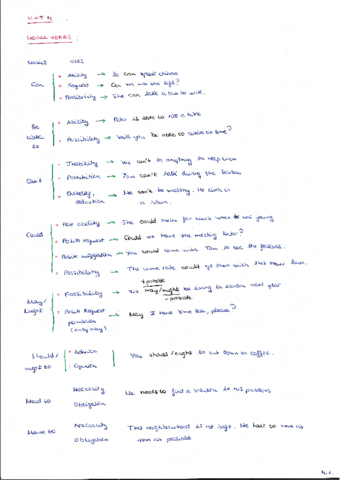 UNIT 4
MODAL VERBS:
Modals Uses
Can
• Ability → Jo can speak chinese
• Request → Can we use the
• Possibility → She can take a bus to work.
Be able to
• Ability → is able to ride a bike
• Possibility → Will you be able to on time?
Can't
• Inability → We can't do anything to help them
• Prohibition → You can't talk during the lesson
• deduction → He can't be wealthy. He lives in a slum.
Could
• Past ability → She could swim for hours when she was young
• Polite request → Could we have the meeting later?
• Polite suggestion → You could come with Tom to see the
• Possibility → The crime rate could go down with this new law.
May/ Might
+ probable
• Possibility → We may/might be living in London next year
- probable
• Polite Request permission (only may) → May I have some please?
Should/ ought to
• Advice
• Opinion
You should/ought to cut down on coffee.
Need to
Necessity
Obligation
We need to find a solution to this problem
Have to
Necessity
Obligation
This neighbourhood is not safe. We have to move as soon as possible